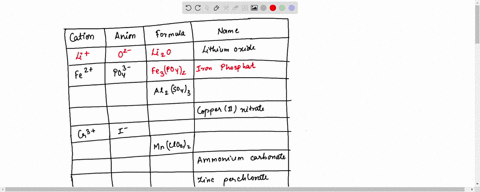 Cation Anion Formula Name
Li+ O2- Li2O Lithium oxide
Fe2+ PO43- Fe3(PO4)2 Iron Phosphat
Al2(SO4)3
Copper(II) nitrate
Cr3+ I-
Mn(ClO3)2
Ammonium carbonate
Zinc perchlorate